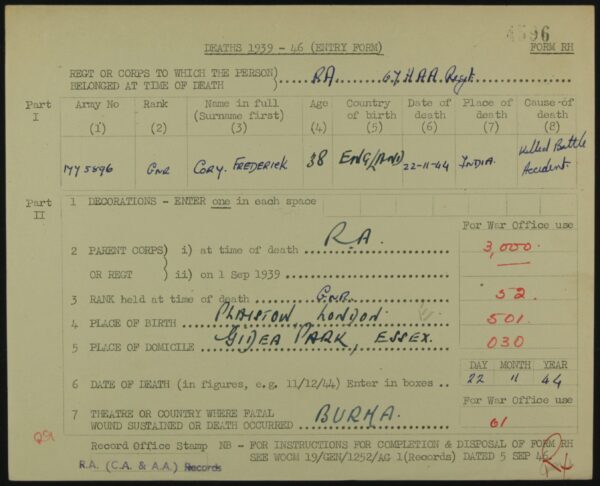 4596
DEATHS 1939 - 46 (ENTRY FORM)
FORM RH
REGT OR CORPS TO WHICH THE PERSON)
BELONGED AT TIME OF DEATH ) ..... RA 67 HAA Regt.
Part I
Army No Rank Name in full (Surname first) Age Country of birth Date of death Place of death Cause of death
(1) (2) (3) (4) (5) (6) (7) (8)
1775896 GNR CORY. FREDERICK 38 ENGLAND 22-11-44 INDIA. Killed Battle Accident.
Part II
1 DECORATIONS - ENTER one in each space
For War Office use
2 PARENT CORPS) i) at time of death ... R.A. 3,000.
OR REGT ) ii) on 1 Sep 1939
3 RANK held at time of death GNR. 52.
4 PLACE OF BIRTH PLAISTOW LONDON 501.
5 PLACE OF DOMICILE GIDEA PARK, ESSEX. 030
DAY MONTH YEAR
6 DATE OF DEATH (in figures, e.g. 11/12/44) Enter in boxes .. 22 11 44
For War Office use
7 THEATRE OR COUNTRY WHERE FATAL
WOUND SUSTAINED OR DEATH OCCURRED BURMA. 01
Record Office Stamp NB - FOR INSTRUCTIONS FOR COMPLETION & DISPOSAL OF FORM RH
SEE WOCM 19/GEN/1252/AG 1(Records) DATED 5 SEP 46
R.A. (C.A. & A.A.) Records